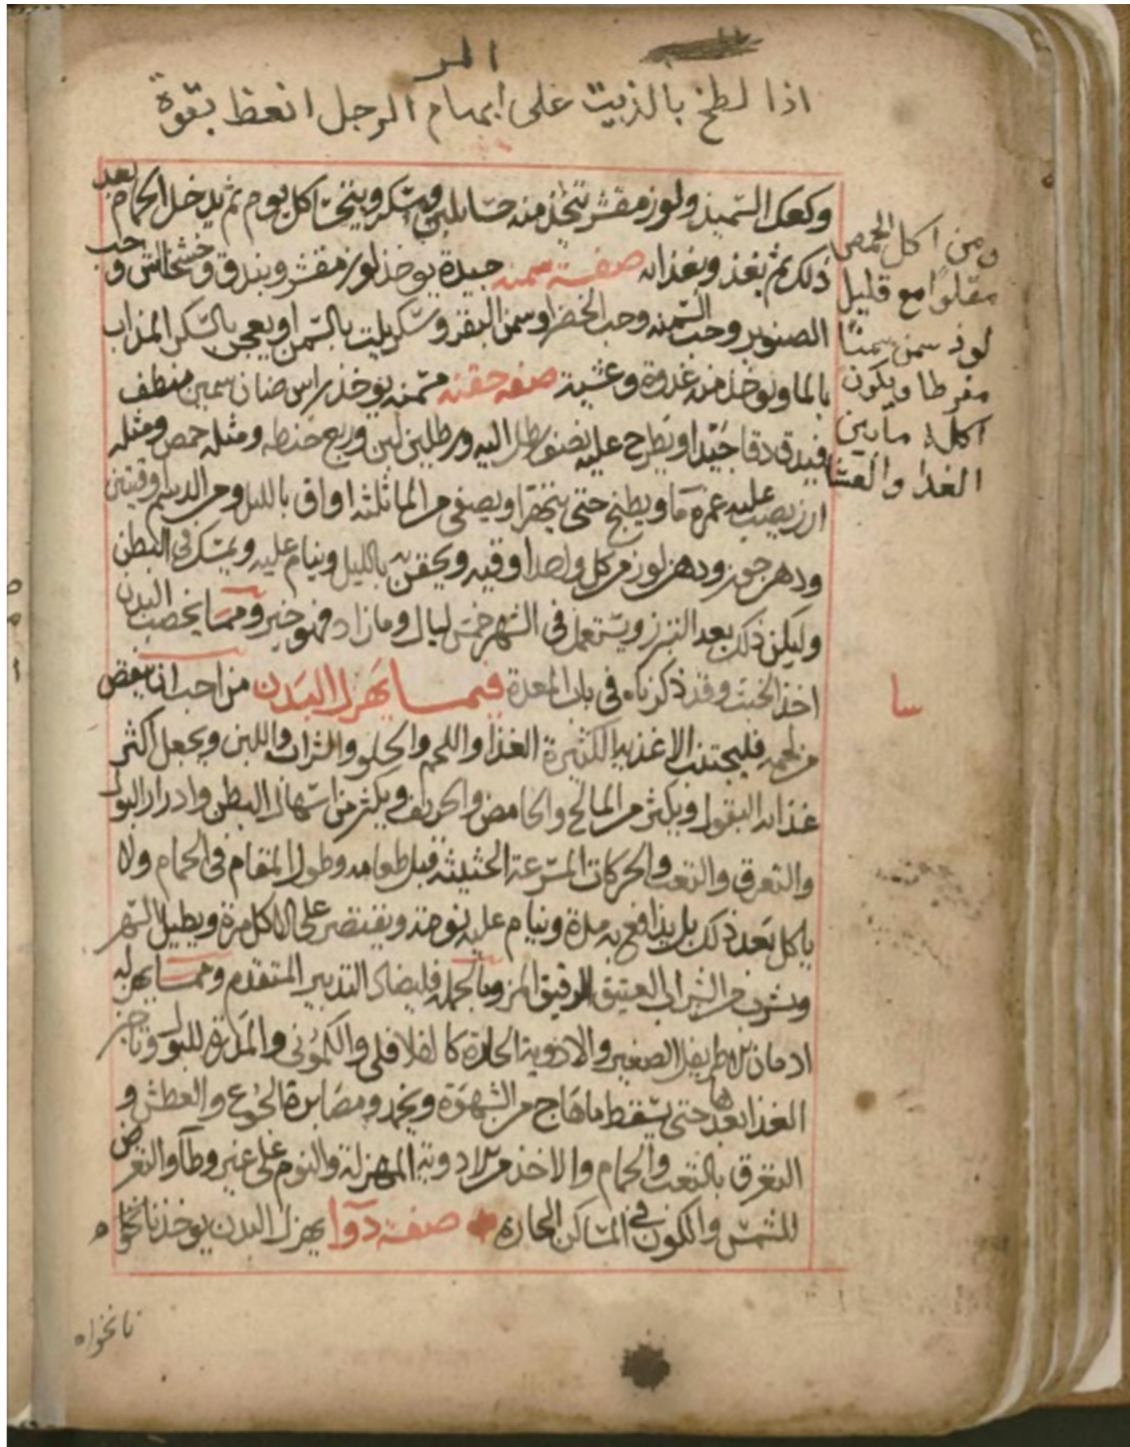 المر
اذا لطخ بالزيت على ابهام الرجل انعظ بقوة
وكعك السميذ ولوز مقشر يتخذ منه حسا بلبن وسكر ويتحسا كل يوم ثم يدخل الحمام بعد
ذلك ثم يغذ وبغذائه صفة سمنه جيدة يوخذ لوز مقشر وبندق وخشخاش وحب
الصنوبر وحب السمنه وحب الخضرا وسمن البقر وسكر يلت بالسمن او يعجن بالسكر المذاب
بالما ويوخذ منه غدوة وعشية صفه حقنه مسمنه يوخذ راس ضان سمين منظف
فيدق دقا جيدا ويطرح عليه نصف رطل اليه ورطلين لبن وربع حنطه ومثله حمص ومثله
ارز يصب عليه غمره ما ويطبخ حتى يتهرا ويصفى من الما ثلثه اواق بالليل ومن الدسم اوقيتين
ودهن جوز ودهن لوز من كل واحد اوقيه ويحقن به بالليل وينام عليه ويمسك في البطن
وليكن ذلك بعد التبرز ويستعمل في الشهر خمس ليال وما زاد فهو خير ومما يخصب البدن
اخذ الخبث وقد ذكرناه في باب المعدة فيما يهزل البدن من احب ان ينقص
من لحمه فليجتنب الاغذيه الكثيرة الغذا واللحم والحلو والشراب واللبن ويجعل اكثر
غذائه البقول ويكثر من المالح والحامض والحريف ويكثر من اسهال البطن وادرار البول
والتعرق والتعب والحركات المسرعة الحثيثه قبل طعامه وطول المقام في الحمام ولا
ياكل بعد ذلك بل يدافع به مدة وينام عليه نومة ويقتصر على الاكل مرة ويطيل السهر
ويشرب من الشراب العتيق الرقيق المز وبالجمله فليضاد التدبير المتقدم ومما يهزله
ادمان الاطريفل الصغير والادوية الحارة كالفلافلي والكموني والمدرة للبول وتاخير
الغذا بعدها حتى يسقط ما هاج من الشهوة ويخمد ومصابرة الجوع والعطش و
التعرق بالتعب والحمام والاخذ من الادوية المهزلة والنوم على غير وطآ والتعرض
للشمس والكون في المساكن الحارة صفة دوا يهزل البدن يوخذ نانخواه
ومن اكل الحمص
مقلوا مع قليل
لوز سمن سمنا
مفرطا ويكون
اكله ما بين
الغدا والعشا
سا
نانخواه